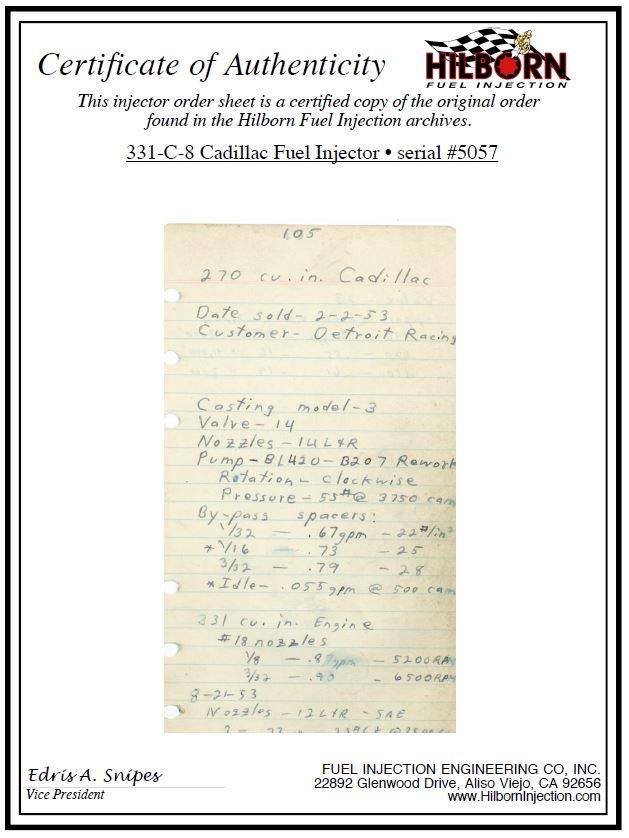 Certificate of Authenticity
HILBORN
FUEL INJECTION
This injector order sheet is a certified copy of the original order
found in the Hilborn Fuel Injection archives.
331-C-8 Cadillac Fuel Injector • serial #5057
105
270 cu. in. Cadillac
Date sold- 2-2-53
Customer- Detroit Racing
Casting model-3
Valve- 14
Nozzles - 14 L&R
Pump- BL420- B207 Rework
Rotation- Clockwise
Pressure- 55# @ 3750 cam
By-pass spacers:
1/32 - .67gpm - 22#/in²
* 1/16 - .73 - 25
3/32 - .79 - 28
* Idle- .055gpm @ 500 cam
331 cu. in. Engine
#18 nozzles
1/8 - gpm - 5200RPM
3/32 - .90 - 6500RPM
8-21-53
Nozzles - 12 L&R - SAE
Edris A. Snipes
Vice President
FUEL INJECTION ENGINEERING CO, INC.
22892 Glenwood Drive, Aliso Viejo, CA 92656
www.HilbornInjection.com